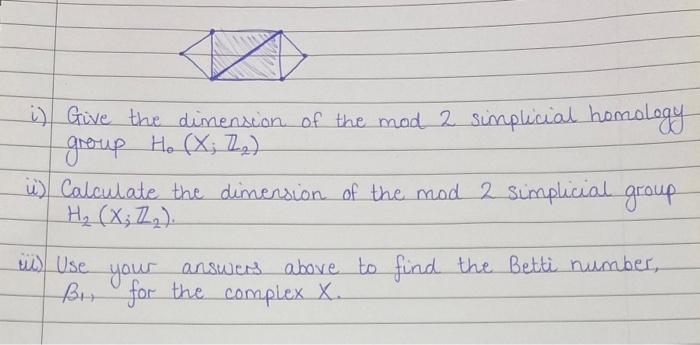 i) Give the dimension of the mod 2 simplicial homology
group H₀ (X; ℤ₂)
ii) Calculate the dimension of the mod 2 simplicial group
H₂ (X; ℤ₂).
iii) Use your answers above to find the Betti number,
β₁, for the complex X.